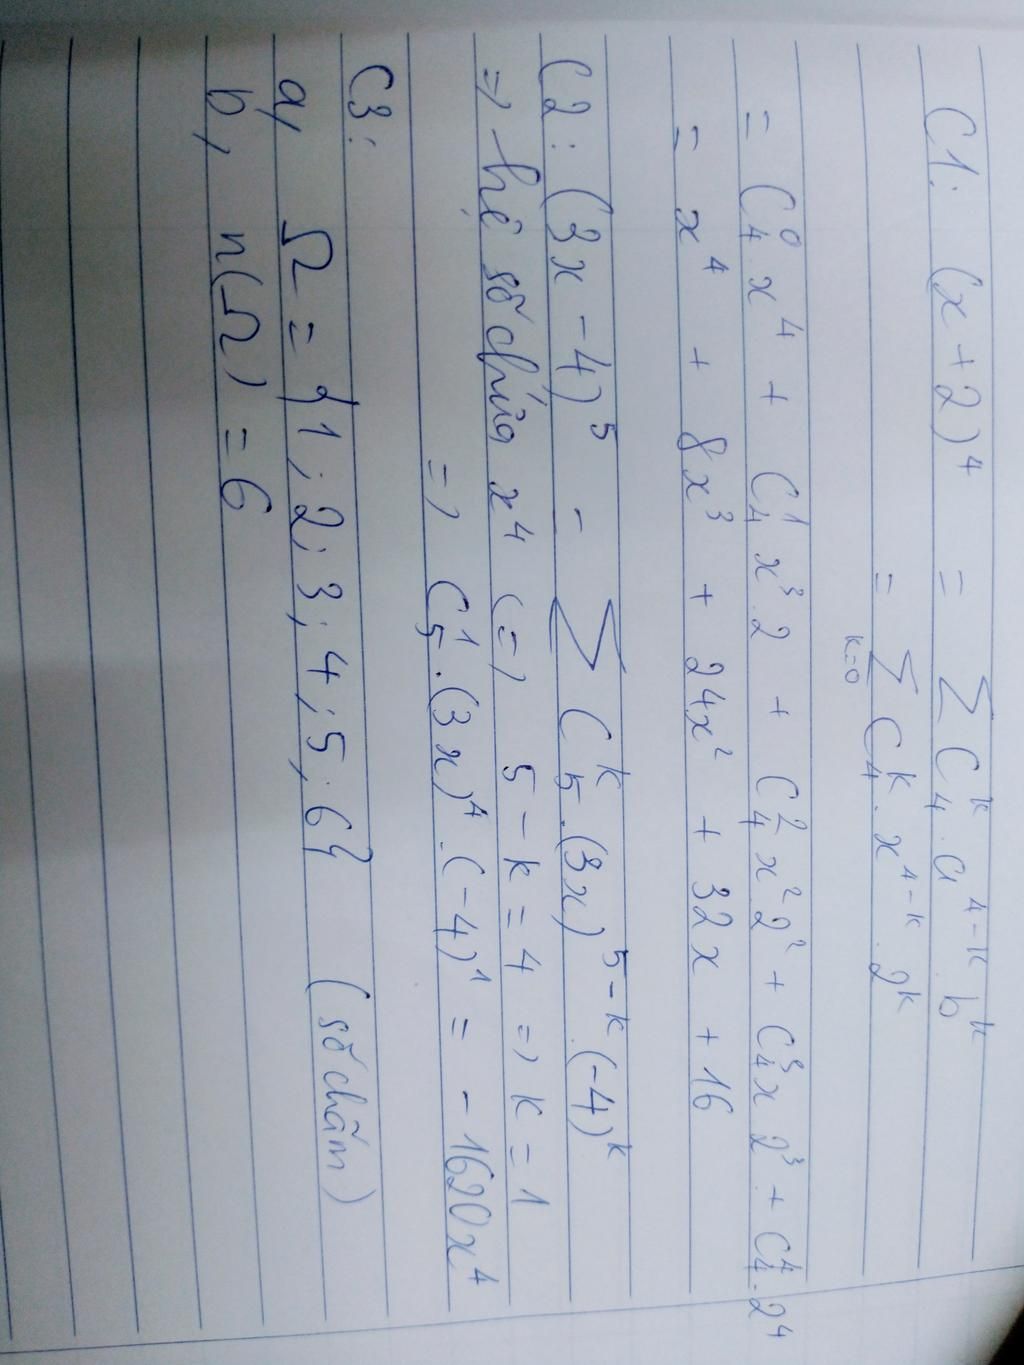 C1: (x + 2)⁴ = ∑ C₄ᵏ . a⁴⁻ᵏ . bᵏ
= ∑ₖ₌₀ C₄ᵏ . x⁴⁻ᵏ . 2ᵏ
= C₄⁰ . x⁴ + C₄¹ x³ . 2 + C₄² x² 2² + C₄³ x 2³ + C₄⁴ . 2⁴
= x⁴ + 8x³ + 24x² + 32x + 16
C2: (3x - 4)⁵ - ∑ C₅ᵏ . (3x)⁵⁻ᵏ . (-4)ᵏ
=> hệ số chứa x⁴ (=) 5 - k = 4 => k = 1
=> C₅¹ . (3x)⁴ . (-4)¹ = - 1620x⁴
C3:
a, Ω = {1 ; 2 ; 3 ; 4 ; 5 ; 6} (số chấm)
b, n(Ω) = 6